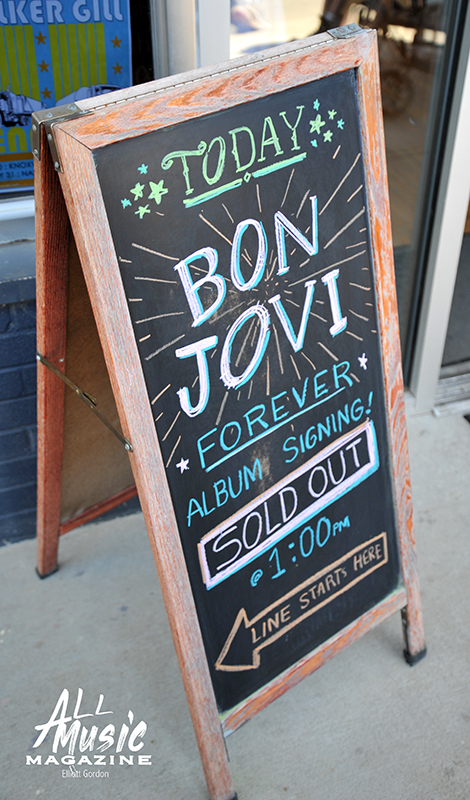 LKER GILL
TODAY
BON
JOVI
FOREVER
ALBUM SIGNING!
SOLD OUT
@ 1:00PM
LINE STARTS HERE
ALL
MUSIC
MAGAZINE
Elliott Gordon